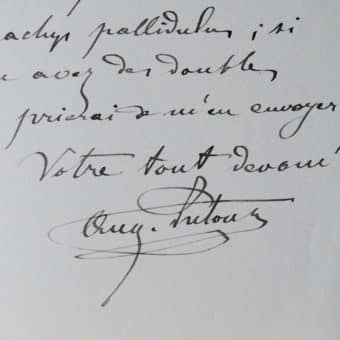 achys pallidulus ; si
avez des doubles
prierai de m'en envoyer
Votre tout dévoué
Aug. Putoux